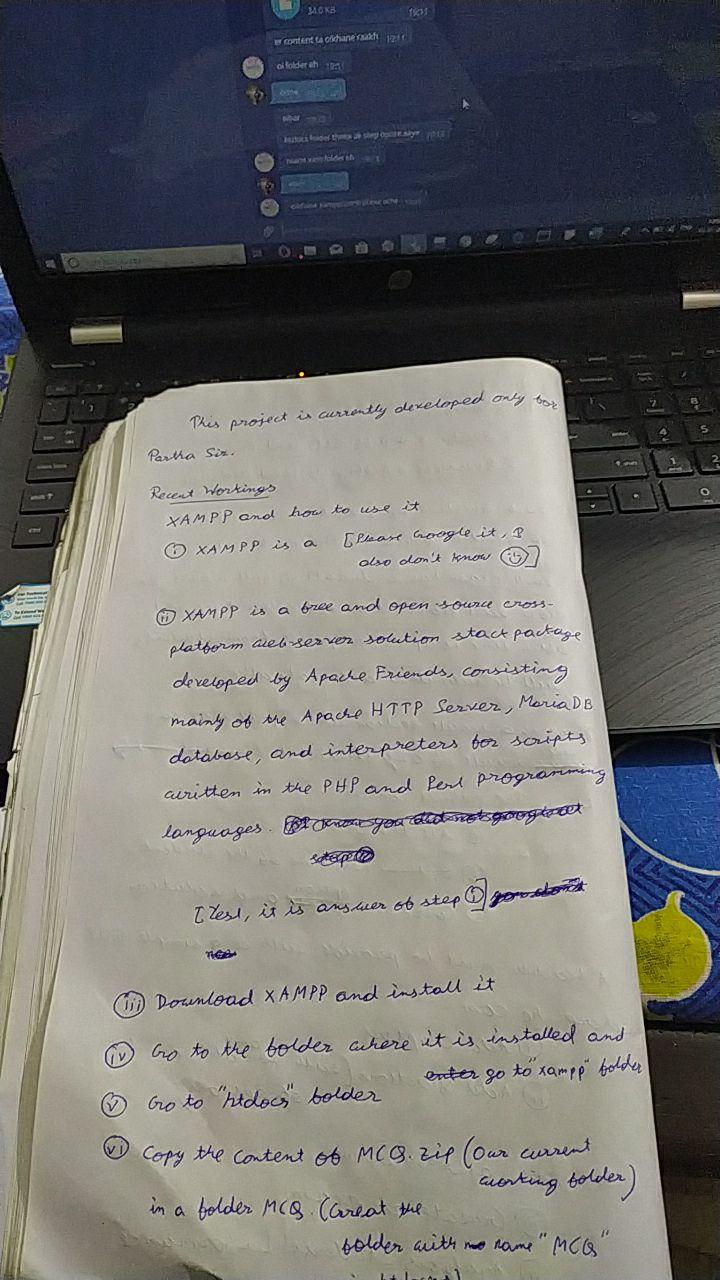 34.0 KB 19:11
er content ta okhane raakh 19:11
oi folder eh 19:11
This project is currently developed only for
Partha Sir.
Recent Workings
XAMPP and how to use it
(i) XAMPP is a [Please Google it, I
also don't know ☺]
(ii) XAMPP is a free and open-source cross-
platform web-server solution stack package
developed by Apache Friends, consisting
mainly of the Apache HTTP Server, MariaDB
database, and interpreters for scripts
written in the PHP and Perl programming
languages.
[Yes!, it is answer of step (i)]
(iii) Download XAMPP and install it
(iv) Go to the folder where it is installed and
enter go to "xampp" folder
(v) Go to "htdocs" folder
(vi) Copy the content of MCQ.zip (Our current
working folder)
in a folder MCQ. (Creat the
folder with no name "MCQ"